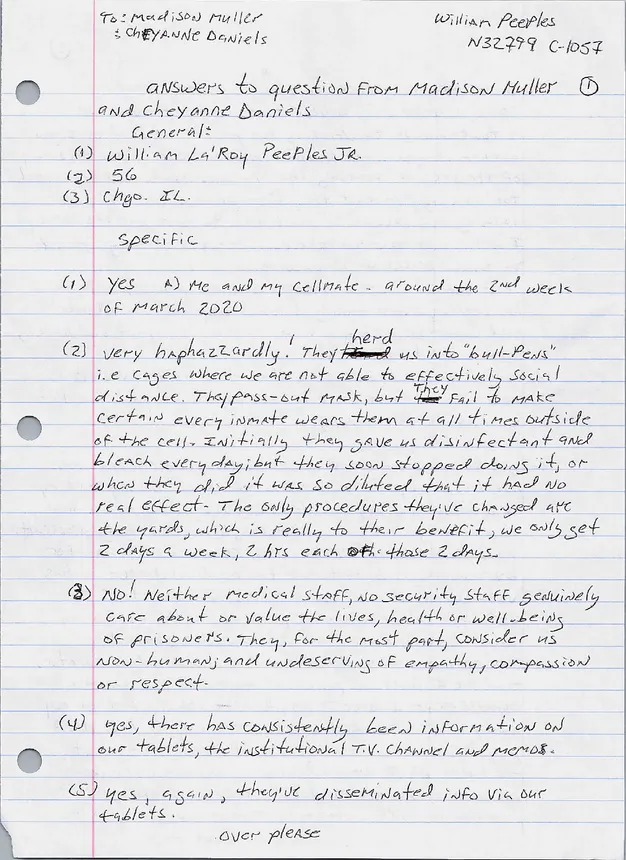 To: Madison Muller
: Cheyanne Daniels
William Peeples
N32799 C-1057
answers to question From Madison Muller ①
and Cheyanne Daniels
General:
(1) William La'Roy Peeples Jr.
(2) 56
(3) Chgo. IL.
Specific
(1) yes A) Me and my cellmate - around the 2nd week
of March 2020
(2) very haphazzardly! They herd us into "bull-Pens"
i.e cages where we are not able to effectively social
distance. They pass-out mask, but They Fail to make
certain every inmate wears them at all times outside
of the cell. Initially they gave us disinfectant and
bleach everyday; but they soon stopped doing it, or
when they did it was so diluted that it had no
real effect. The only procedures they've changed are
the yards, which is really to their benefit, we only get
2 days a week, 2 hrs each those 2 days.
(3) NO! Neither medical staff, no security staff genuinely
care about or value the lives, health or well-being
of prisoners. They, for the most part, consider us
non-human; and undeserving of empathy, compassion
or respect.
(4) yes, there has consistently been information on
our tablets, the institutional T.V. channel and memos.
(5) yes, again, they've disseminated info via our
tablets.
over please